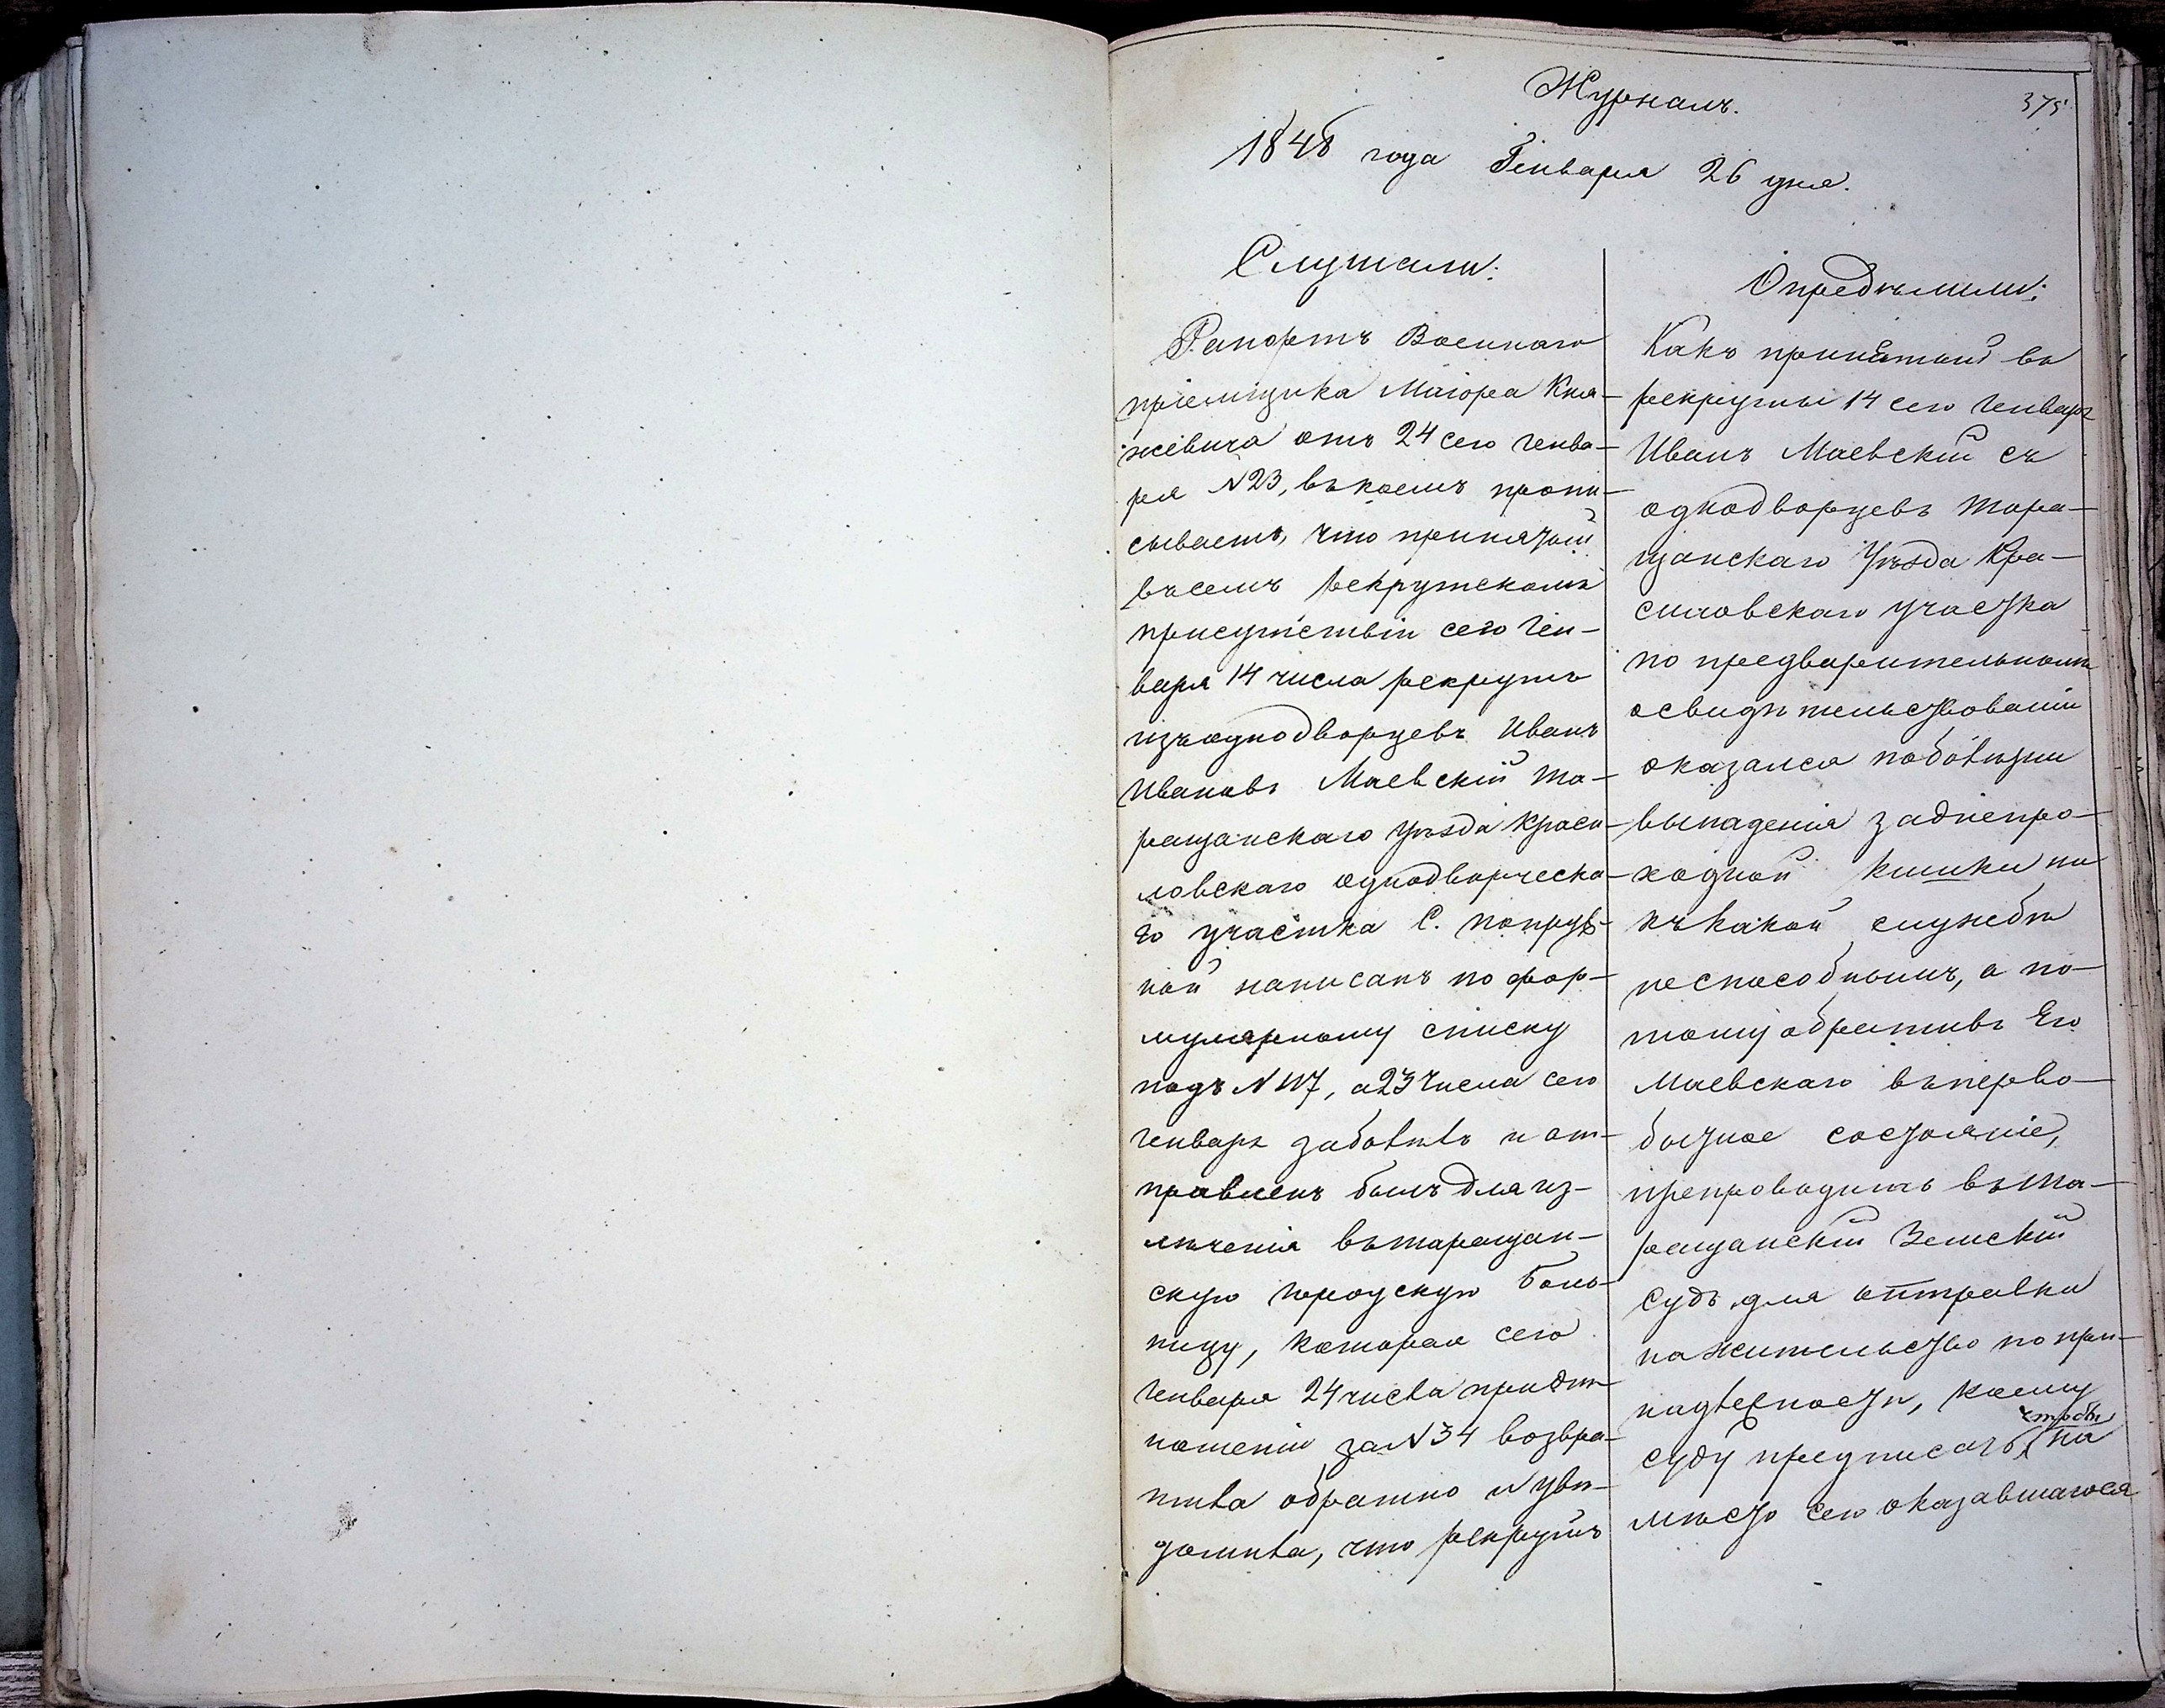 Журналъ.
375
1848 года Генваря 26 дня.
Слушали:
Рапортъ Военнаго
пріемщика Маіора Кня-
жевича отъ 24 сего Генва-
ря №23, въ коемъ пропи-
сываетъ, что принятый
въ семъ рекрутскомъ
присутствіи сего Ген-
варя 14 числа рекрутъ
изъ однодворцевъ Иванъ
Ивановъ Маевскій Та-
ращанскаго уѣзда Краси-
ловскаго однодворческа-
го участка С.
ной написанъ по фор-
мулярному списку
подъ №117, а 23 числа сего
Генваря заболѣлъ и от-
правленъ былъ для из-
лѣченія въ таращан-
скую городскую боль-
ницу, которая сего
Генваря 24 числа при от-
ношеніи за №34 возвра-
тила обратно и увѣ-
домила, что рекрутъ
Опредѣлили:
Какъ принятый въ
рекруты 14 сего Генваря
Иванъ Маевскій съ
однодворцевъ Тара-
щанскаго Уѣзда Кра-
силовскаго участка
по предварительномъ
освидѣтельствованіи
оказался по болѣзни
выпаденія заднепро-
ходной кишки ни
къ какой службѣ
неспособнымъ, а по-
тому обративъ Его
Маевскаго въ перво-
бытное состояніе,
препроводить въ Та-
ращанскій Земскій
судъ для отправки
на жительство по при-
надлежности, коему
суду предписать чтобы на
мѣсто сего оказавшагося